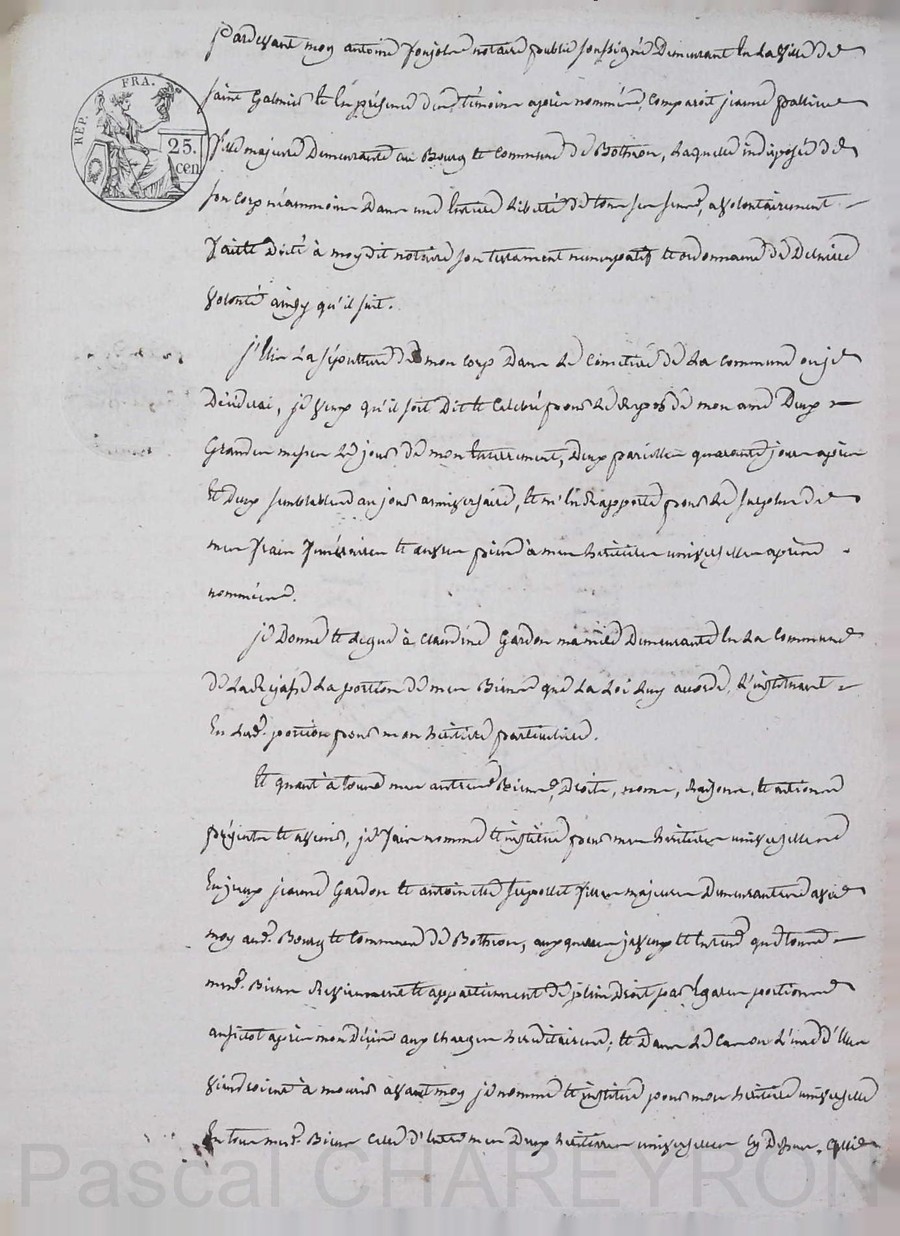 REP. FRA.
25. cen
Pardevant moy antoine Ponjol notaire public soussigné Demeurant En La Ville de
saint Galmier Et En présence des témoins après nommés, comparoit jeanne
fille majeure Demeurante au Bourg Et Commune de Bothéon, Laquelle indisposée de
son corp néanmoins Dans une Entière Liberté de tous ses sens, a volontairement
fait Et Dicté à moy dit notaire son testament nuncupatif Et ordonnance de Dernière
volonté ainsy qu'il suit.
j'Elis La sépulture de mon corp Dans Le Cimetière de La commune ou je
Décèderai, je veux qu'il soit Dit Et Celebré pour Le Repos de mon ame Deux
Grandes messes Le jour de mon Enterrement, Deux pareilles quarante jours après
Et Deux semblables au jour anniversaire, Et m'En Rapporte pour Le surplus de
mes frais funéraires Et œuvres pies à mes héritières universelles après
nommées.
je Donne Et Legue à Claudine Gardon ma nièce Demeurante En La Commune
de La La portion de mes Biens que La Loi Luy accorde, L'instituant
En Lad. portion pour mon héritière particulière.
Et quant à tous mes autres Biens, Droits, noms, Raisons, Et actions
présents Et avenirs, je fais nomme Et institue pour mes héritières universelles
jeanne Gardon Et antoinette filles majeures Demeurantes avec
moy aud. Bourg Et Commune de Bothéon, auxquelles je veux Et Entend que tous
mesd. Biens Reviennent Et appartiennent de plein Droit par Egales portions
aussitot après mon Décès aux charges héréditaires; Et Dans Le Cas ou L'une d'Elles
viendroient à mourir avant moy je nomme Et institue pour mon héritière universelle
En tous mesd. Biens Celle d'Entre mes Deux héritières universelles Cy Dessus,
Pascal CHAREYRON